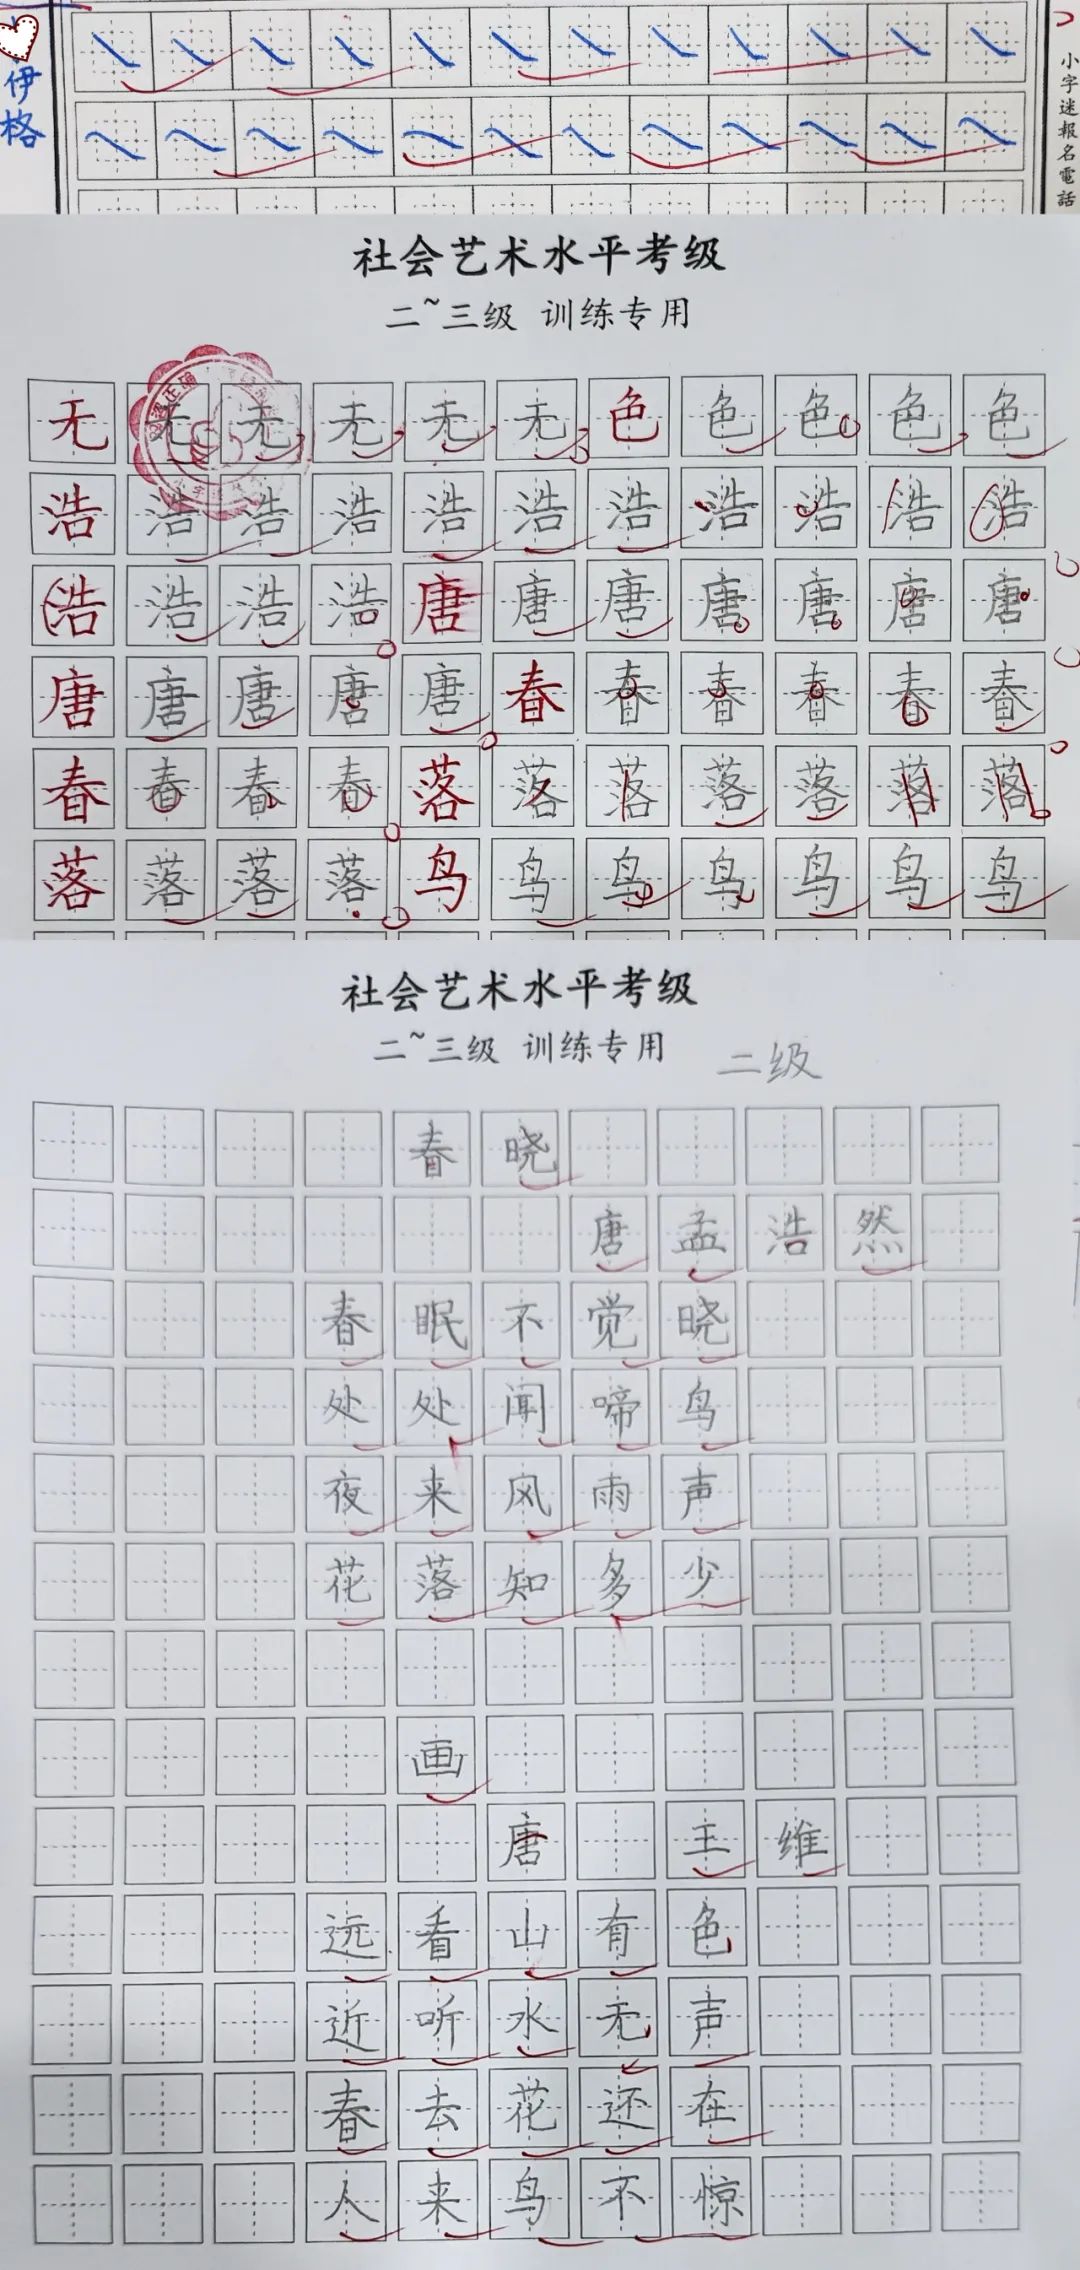 伊格
小字迷報名電話
社会艺术水平考级
二~三级 训练专用
无无无无无无色色色色色
浩浩浩浩浩浩浩浩浩浩浩
浩浩浩浩唐唐唐唐唐唐唐
唐唐唐唐唐春春春春春春
春春春春落落落落落落落
落落落落鸟鸟鸟鸟鸟鸟鸟
社会艺术水平考级
二~三级 训练专用 二级
春晓
唐孟浩然
春眠不觉晓
处处闻啼鸟
夜来风雨声
花落知多少
画
唐 王维
远看山有色
近听水无声
春去花还在
人来鸟不惊